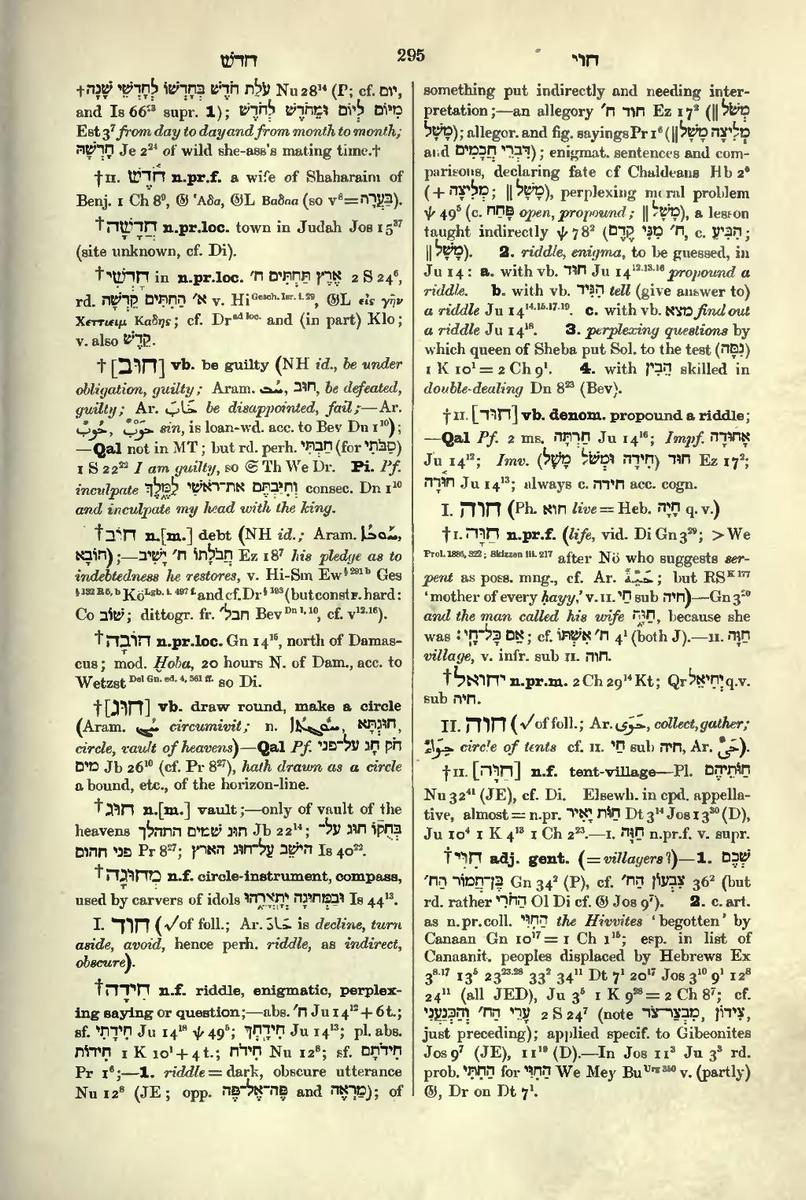 חדשׁ
295
חוי
†עֹלַת חֹדֶשׁ בְּחָדְשׁוֹ לְחָדְשֵׁי שָׁנָה Nu 28¹⁴ (P; cf. יום,
and Is 66²³ supr. 1); מִיּוֹם לְיוֹם וּמֵחֹדֶשׁ לְחֹדֶשׁ
Est 3⁷ from day to day and from month to month;
חָדְשָׁהּ Je 2²⁴ of wild she-ass's mating time.†
†II. חֹדֶשׁ n.pr.f. a wife of Shaharaim of
Benj. 1 Ch 8⁹, 𝔊 Ἀδα, 𝔊L Βαδαα (so v⁸=בַּעֲרָה).
†חֲדָשָׁה n.pr.loc. town in Judah Jos 15³⁷
(site unknown, cf. Di).
†חָדְשִׁי in n.pr.loc. אֶרֶץ תַּחְתִּים ח׳ 2 S 24⁶,
rd. א׳ הַחִתִּים קָדֵשָׁה v. Hi Gesch. Isr. i. 29, 𝔊L εἰς γῆν
Χεττιειμ Καδης; cf. Dr ad loc. and (in part) Klo;
v. also קֶדֶשׁ.
†[חוּב] vb. be guilty (NH id., be under
obligation, guilty; Aram. חוּב, be defeated,
guilty; Ar. خَابَ be disappointed, fail;—Ar.
حُوبٌ, حَوْبٌ sin, is loan-wd. acc. to Bev Dn 1¹⁰);
—Qal not in MT; but rd. perh. חַבְתִּי (for סַבֹּתִי)
1 S 22²² I am guilty, so 𝔖 Th We Dr. Pi. Pf.
inculpate וְחִיַּבְתֶּם אֶת־רֹאשִׁי לַמֶּלֶךְ consec. Dn 1¹⁰
and inculpate my head with the king.
†חוֹב n.[m.] debt (NH id.; Aram.
חוֹבָא);—חֲבֹלָתוֹ ח׳ יָשִׁיב Ez 18⁷ his pledge as to
indebtedness he restores, v. Hi-Sm Ew § 291 b Ges
§ 132 R5, b Kö Lgb. i. 497 f. and cf. Dr § 193 (but constr. hard:
Co שׁוֹב; dittogr. fr. חבל׳ Bev Dn 1, 10, cf. v¹²·¹⁶).
†חוֹבָה n.pr.loc. Gn 14¹⁵, north of Damas-
cus; mod. Ḥoba, 20 hours N. of Dam., acc. to
Wetzst Del Gn. ed. 4, 561 ff. so Di.
†[חוּג] vb. draw round, make a circle
(Aram. circumivit; n. חוּגְתָּא,
circle, vault of heavens)—Qal Pf. חֹק חָג עַל־פְּנֵי
מַיִם Jb 26¹⁰ (cf. Pr 8²⁷), hath drawn as a circle
a bound, etc., of the horizon-line.
†חוּג n.[m.] vault;—only of vault of the
heavens חוּג שׁמים התהלך Jb 22¹⁴; בְּחֻקוֹ חוּג על־
פני תהום Pr 8²⁷; הישֵׁב על־חוּג הארץ Is 40²².
†מְחוּגָה n.f. circle-instrument, compass,
used by carvers of idols וּבַמְּחוּגָה יְתָאֳרֵהוּ Is 44¹³.
I. חוד (√of foll.; Ar. حَادَ is decline, turn
aside, avoid, hence perh. riddle, as indirect,
obscure).
†חִידָה n.f. riddle, enigmatic, perplex-
ing saying or question;—abs. ח׳ Ju 14¹²+6 t.;
sf. חִידָתִי Ju 14¹⁸ ψ 49⁵; חִידָתְךָ Ju 14¹³; pl. abs.
חִידוֹת 1 K 10¹+4 t.; חִידֹת Nu 12⁸; sf. חִידֹתָם
Pr 1⁶;—1. riddle = dark, obscure utterance
Nu 12⁸ (JE; opp. פֶּה־אֶל־פֶּה and מַרְאֶה); of
something put indirectly and needing inter-
pretation;—an allegory חוּד ח׳ Ez 17² (‖ מְשֹׁל
מָשָׁל); allegor. and fig. sayings Pr 1⁶ (‖ מְלִיצָה מָשָׁל
and דִּבְרֵי חֲכָמִים); enigmat. sentences and com-
parisons, declaring fate of Chaldeans Hb 2⁶
(+ מְלִיצָה; ‖ מָשָׁל), perplexing moral problem
ψ 49⁵ (c. פָּתַח open, propound; ‖ מָשָׁל), a lesson
taught indirectly ψ 78² (ח׳ מִנִּי קֶדֶם, c. הִבִּיעַ;
‖ מָשָׁל). 2. riddle, enigma, to be guessed, in
Ju 14: a. with vb. חוּד Ju 14¹²·¹³·¹⁶ propound a
riddle. b. with vb. הִגִּיד tell (give answer to)
a riddle Ju 14¹⁴·¹⁵·¹⁷·¹⁹. c. with vb. מצא find out
a riddle Ju 14¹⁸. 3. perplexing questions by
which queen of Sheba put Sol. to the test (נִסָּה)
1 K 10¹ = 2 Ch 9¹. 4. with הֵבִין skilled in
double-dealing Dn 8²³ (Bev).
†II. [חוּד] vb. denom. propound a riddle;
—Qal Pf. 2 ms. חַדְתָּה Ju 14¹⁶; Impf. אָחוּדָה
Ju 14¹²; Imv. חוּד (חִידָה וּמְשֹׁל מָשָׁל) Ez 17²;
חוּדָה Ju 14¹³; always c. חידה acc. cogn.
I. חוה (Ph. חוא live = Heb. חָיָה q. v.)
†I. חַוָּה n.pr.f. (life, vid. Di Gn 3²⁰; > We
Prol. 1886, 322; Skizzen iii. 217 after Nö who suggests ser-
pent as poss. mng., cf. Ar. حَيَّةٌ; but RS K 177
‘mother of every ḥayy,’ v. II. חַי sub חיה)—Gn 3²⁰
and the man called his wife חַוָּה, because she
was אֵם כָּל־חָי׃; cf. ח׳ אִשְׁתּוֹ 4¹ (both J).—II. חַוָּה
village, v. infr. sub II. חוה.
†יחואל n.pr.m. 2 Ch 29¹⁴ Kt; Qr יְחִיאֵל q.v.
sub חיה.
II. חוה (√of foll.; Ar. حَوَى, collect, gather;
حِوَاءٌ circle of tents cf. II. חַי sub חיה, Ar. حَىٌّ).
†II. [חַוָּה] n.f. tent-village—Pl. חַוֹּתֵיהֶם
Nu 32⁴¹ (JE), cf. Di. Elsewh. in cpd. appella-
tive, almost = n.pr. חַוֹּת יָאִיר Dt 3¹⁴ Jos 13³⁰ (D),
Ju 10⁴ 1 K 4¹³ 1 Ch 2²³.—I. חַוָּה n.pr.f. v. supr.
†חִוִּי adj. gent. (= villagers?)—1. שְׁכֶם
בֶּן־חֲמוֹר הַח׳ Gn 34² (P), cf. צִבְעוֹן הַח׳ 36² (but
rd. rather הַחֹרִי Ol Di cf. 𝔊 Jos 9⁷). 2. c. art.
as n.pr.coll. הַחִוִּי the Hivvites ‘begotten’ by
Canaan Gn 10¹⁷ = 1 Ch 1¹⁵; esp. in list of
Canaanit. peoples displaced by Hebrews Ex
3⁸·¹⁷ 13⁵ 23²³·²⁸ 33² 34¹¹ Dt 7¹ 20¹⁷ Jos 3¹⁰ 9¹ 12⁸
24¹¹ (all JED), Ju 3⁵ 1 K 9²⁰ = 2 Ch 8⁷; cf.
עָרֵי הַח׳ וְהַכְּנַעֲנִי 2 S 24⁷ (note צִידוֹן, מִבְצַר־צֹר,
just preceding); applied specif. to Gibeonites
Jos 9⁷ (JE), 11¹⁹ (D).—In Jos 11³ Ju 3³ rd.
prob. הַחִתִּי for הַחִוִּי We Mey Bu Urg 350 v. (partly)
𝔊, Dr on Dt 7¹.